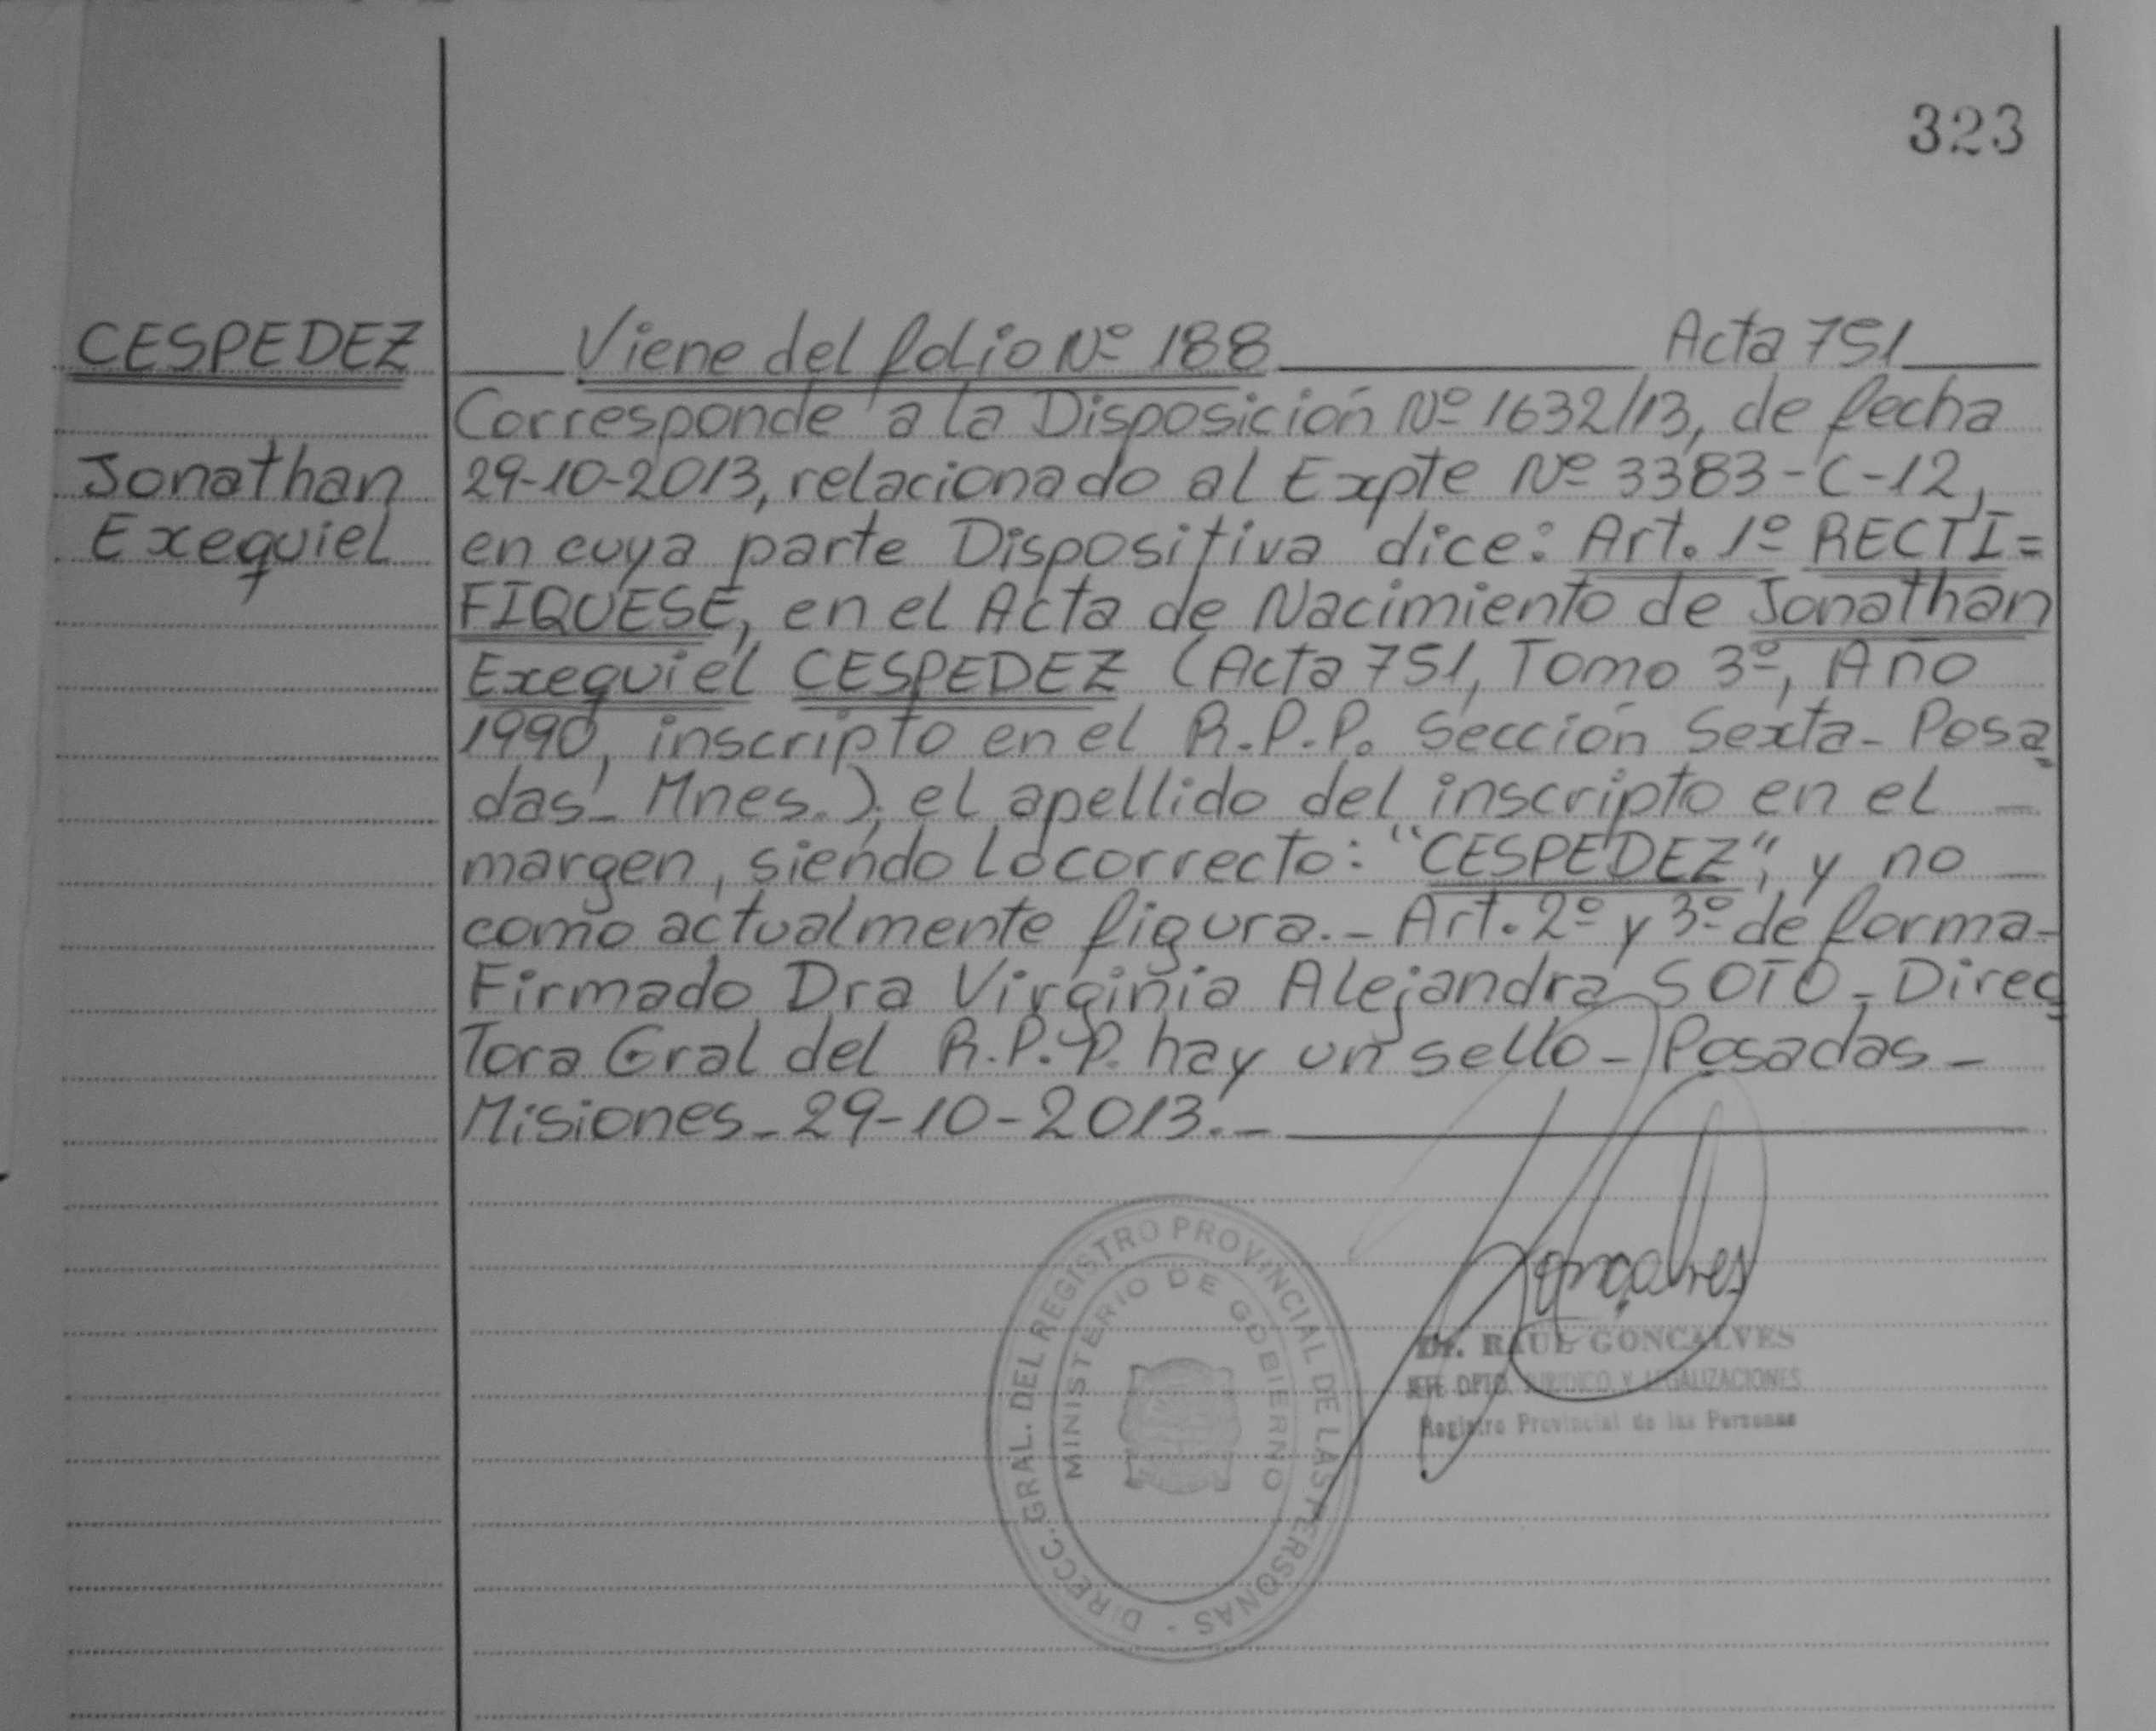 323
CESPEDEZ
Jonathan
Exequiel
Viene del folio Nº 188 Acta 751
Corresponde a la Disposición Nº 1632/13, de fecha
29-10-2013, relacionado al Expte Nº 3383-C-12,
en cuya parte Dispositiva dice: Art. 1º RECTI=
FIQUESE, en el Acta de Nacimiento de Jonathan
Exequiel CESPEDEZ (Acta 751, Tomo 3º, Año
1990, inscripto en el R.P.P. Sección Sexta- Posa
das- Mnes.), el apellido del inscripto en el -
margen, siendo lo correcto: "CESPEDEZ", y no -
como actualmente figura.- Art. 2º y 3º de forma-
Firmado Dra Virginia Alejandra SOTO - Direc
Tora Gral del R.P.P. hay un sello- Posadas-
Misiones- 29-10-2013.-
DIRECC. GRAL. DEL REGISTRO PROVINCIAL DE LAS PERSONAS -
MINISTERIO DE GOBIERNO
Goncalves
Dr. RAUL GONCALVES
JEFE DPTO. JURIDICO Y LEGALIZACIONES
Registro Provincial de las Personas